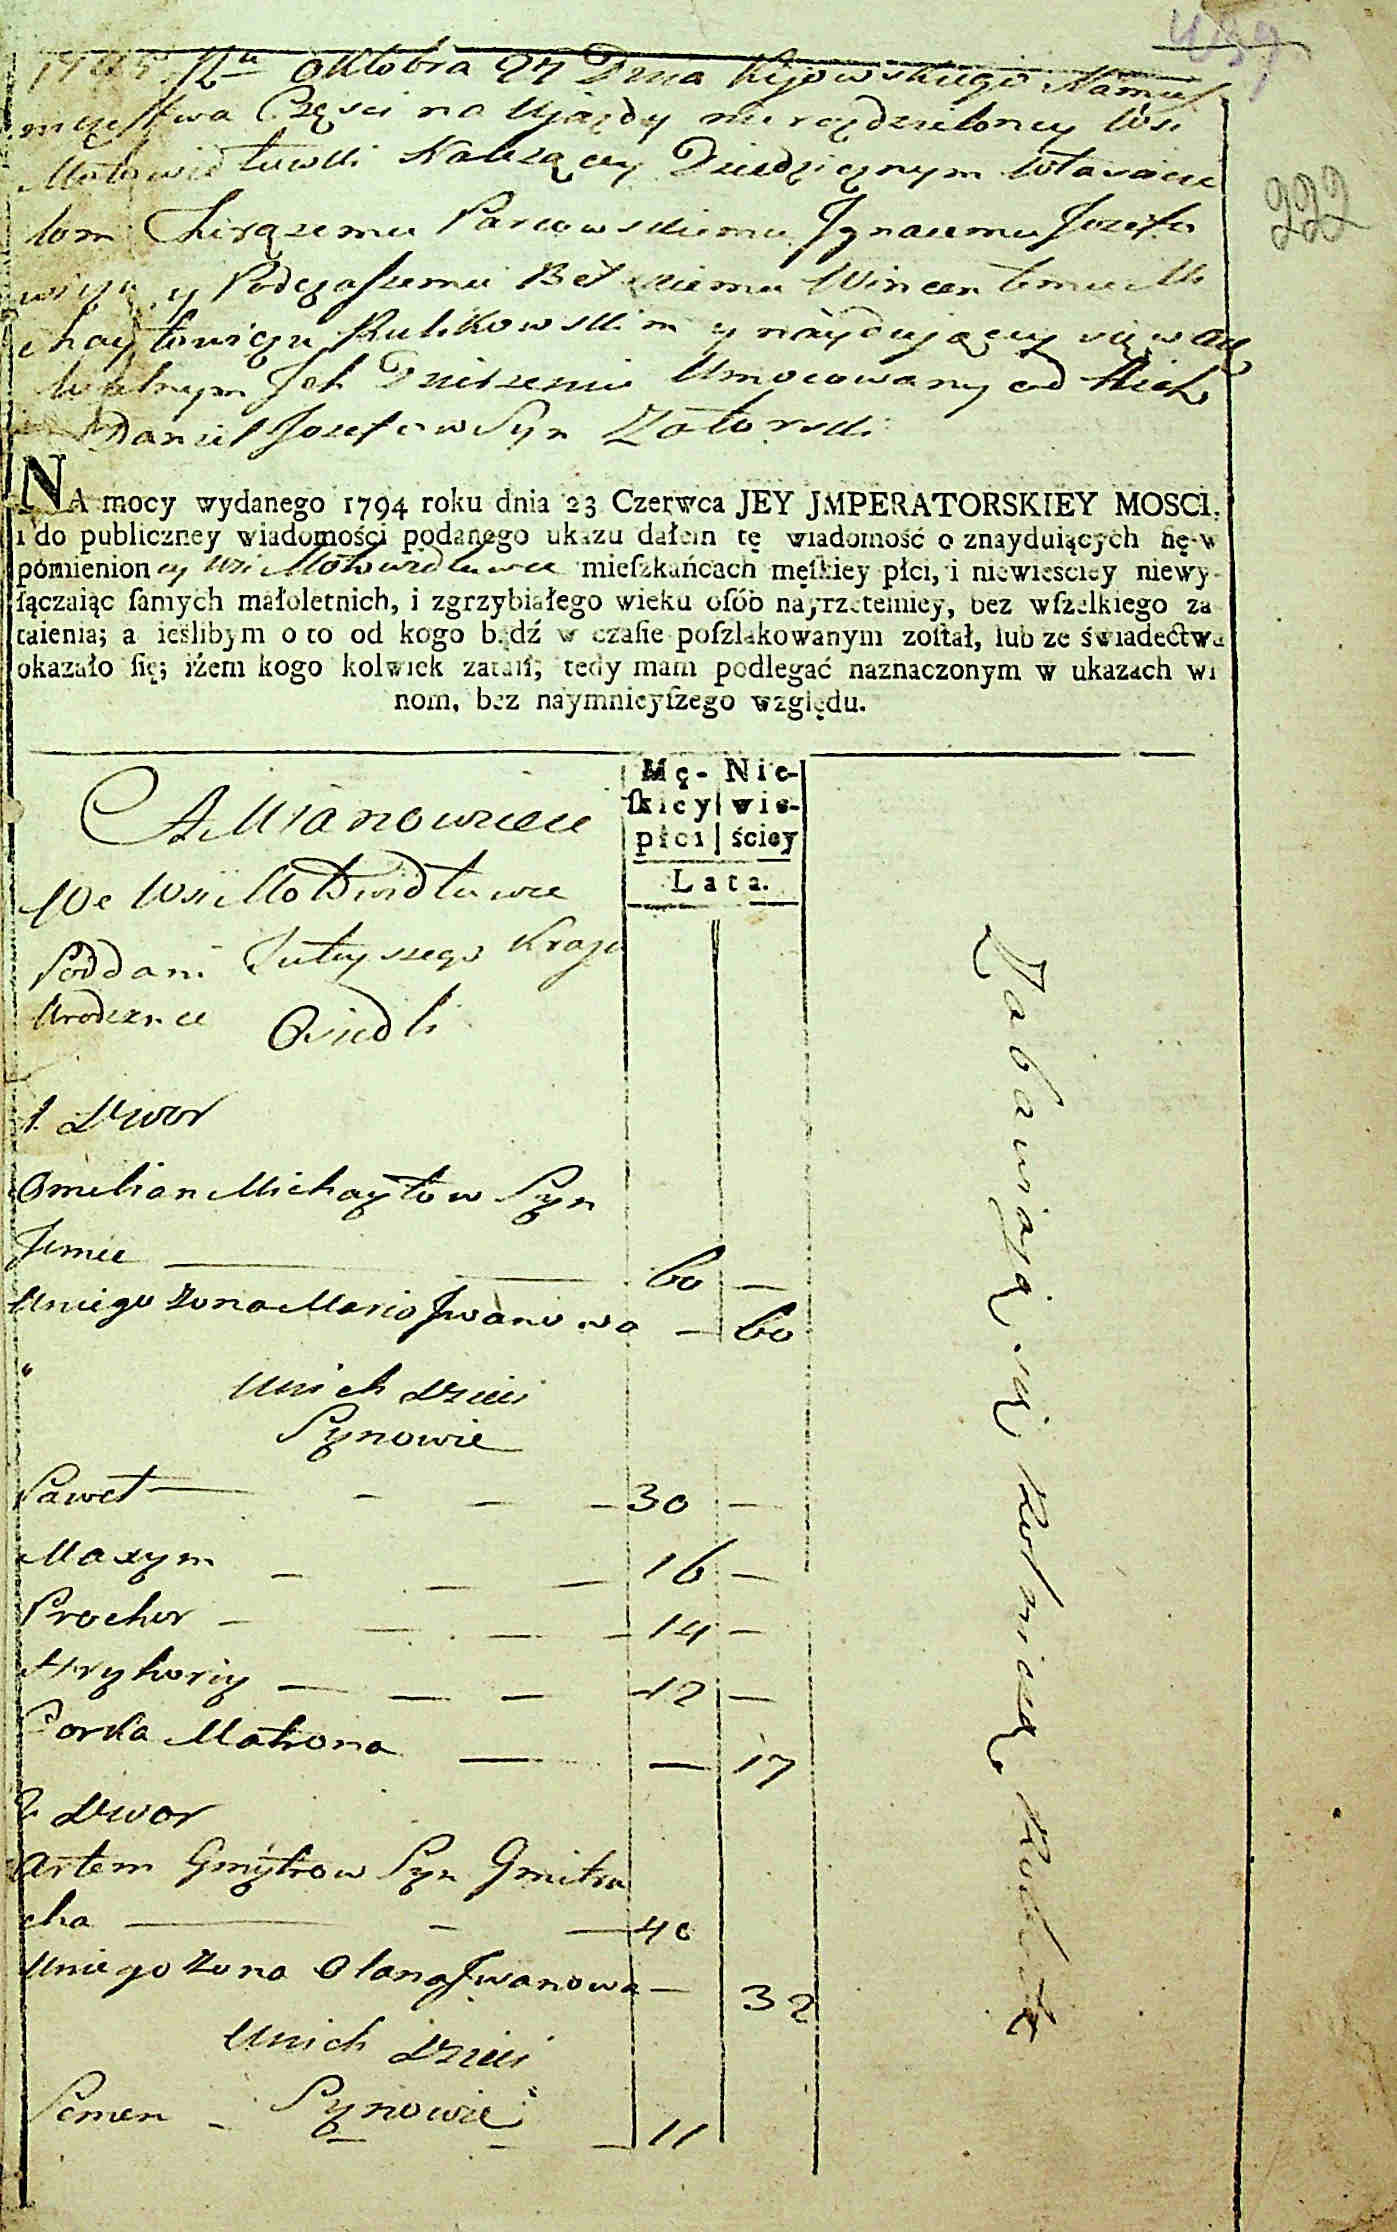 439
222
1795 Oktobra 27 Dnia Kijowskiego Namies
nictwa Części na Ujazdy nierozdzieloney Wsi
Motowidłuwki Nalezącey Dziedzicznym Własicie
lom Chorązemu Parcowskiemu Ignacemu Jozefo
wiczu y Podczaszemu Bełzkiemu Wincentemu Mi
chayłowiczu Rulikowskim y nayduiącey się w
Ich Dzierzeniu Umocowany od Nich
Daniel Jozefow Syn Zatorski
NA mocy wydanego 1794 roku dnia 23 Czerwca JEY JMPERATORSKIEY MOSCI,
i do publiczney wiadomości podanego ukazu dałem tę wiadomość o znayduiących ſię w
pomienioney Wsi Motowidłuwce mieſzkańcach męſkiey płci, i niewieściey niewy-
łączaiąc ſamych małoletnich, i zgrzybiałego wieku oſób nayrzetelniey, bez wſzelkiego za
taienia; a ieślibym o to od kogo bądź w czaſie poſzlakowanym zoſtał, lub ze świadectwa
okazało ſię; iżem kogo kolwiek zataił; tedy mam podlegać naznaczonym w ukazach wi
nom, bez naymnieyſzego względu.
A Mianowicie
Mę- Nie-
ſkiey wie-
płci ściey
Lata.
We Wsi Motowidłuwce
Poddani Tutyszego Kraju
Urodzence Osiedli
1. Dwor
Omelian Michayłow Syn
60 —
Uniego Zona Maria Iwanowa — 60
Unich Dzieci
Synowie
Paweł — 30 —
Maxym — 16 —
Prochor — 14 —
Hryhoriy — 12 —
Corka Matrona — 17
2 Dwor
Artem Gmytrow Syn Gmitru
cha — 40
Uniego Zona Olana Iwanowa — 32
Unich Dzieci
Synowie
Semen — 11
Zabawiaią się Rolniczą Robotą